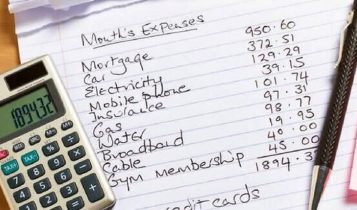 Month's Expenses
Mortgage 950.60
Car 372.51
Electricity 129.29
Mobile phone 39.15
Insurance 101.74
Gas 97.31
Water 98.77
Broadband 19.95
Cable 40.00
Gym Membership 45.00
1894.3
credit cards
1894.32